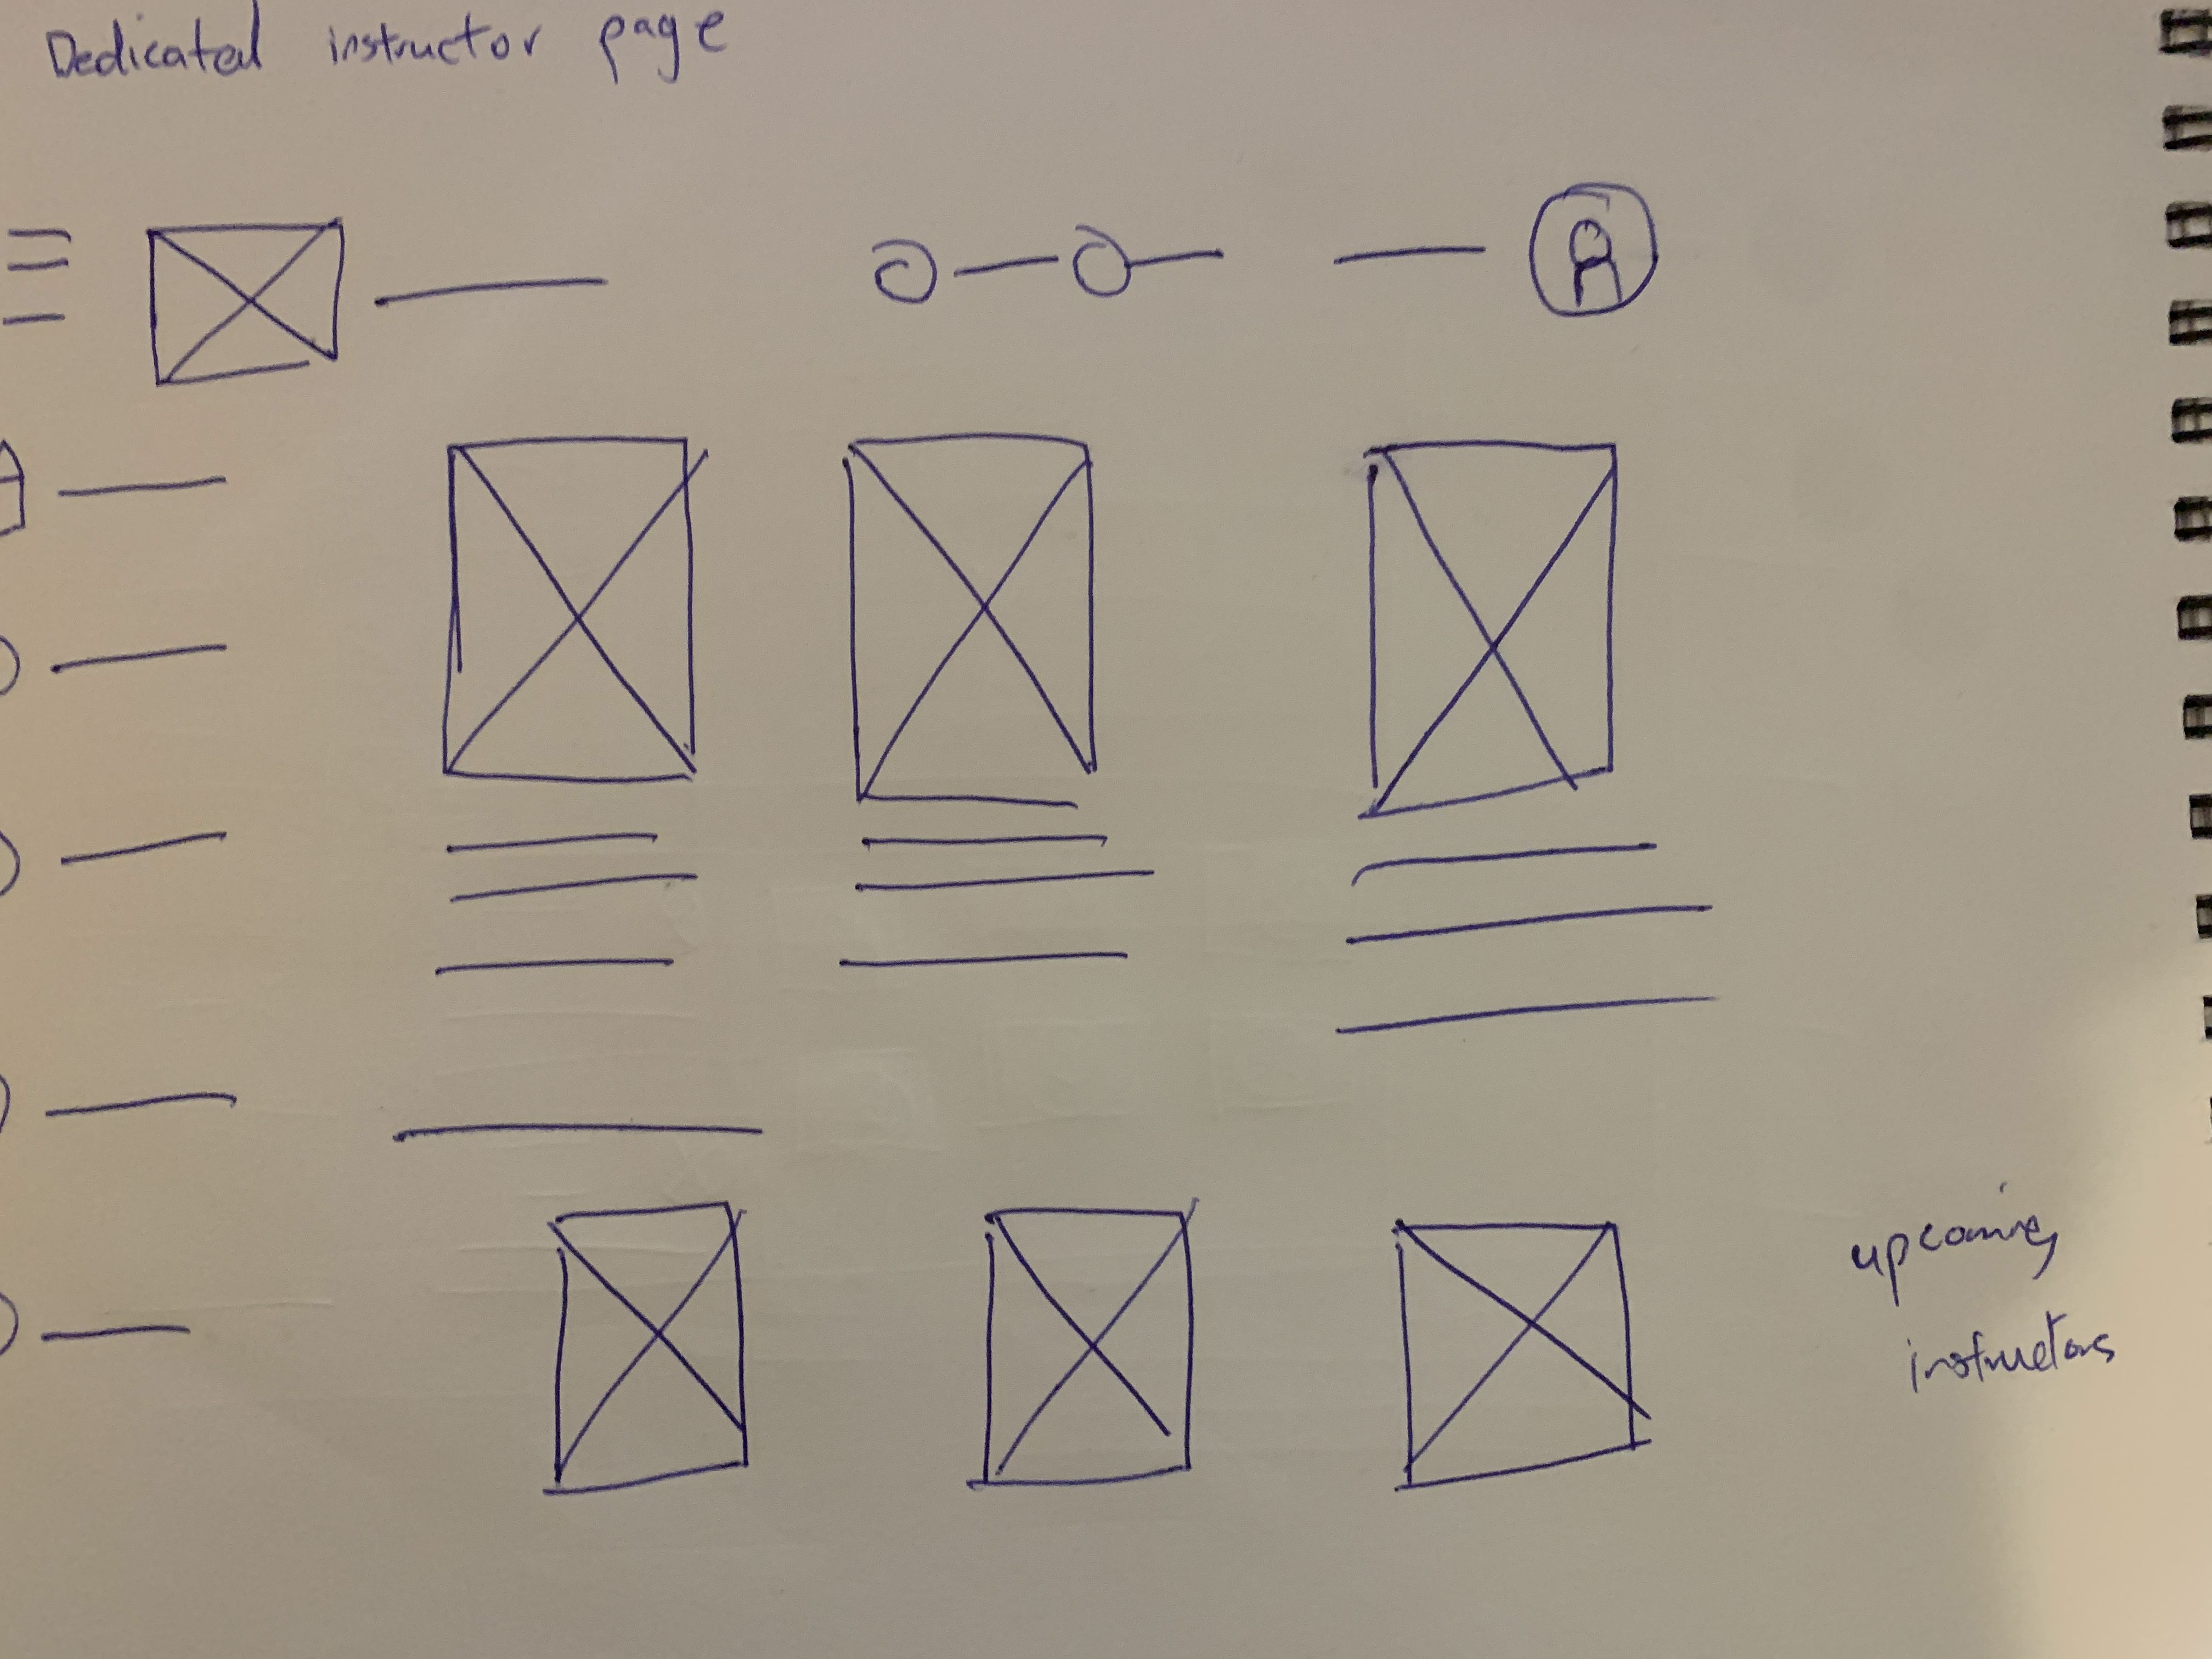 Dedicated instructor page
upcoming
instructors